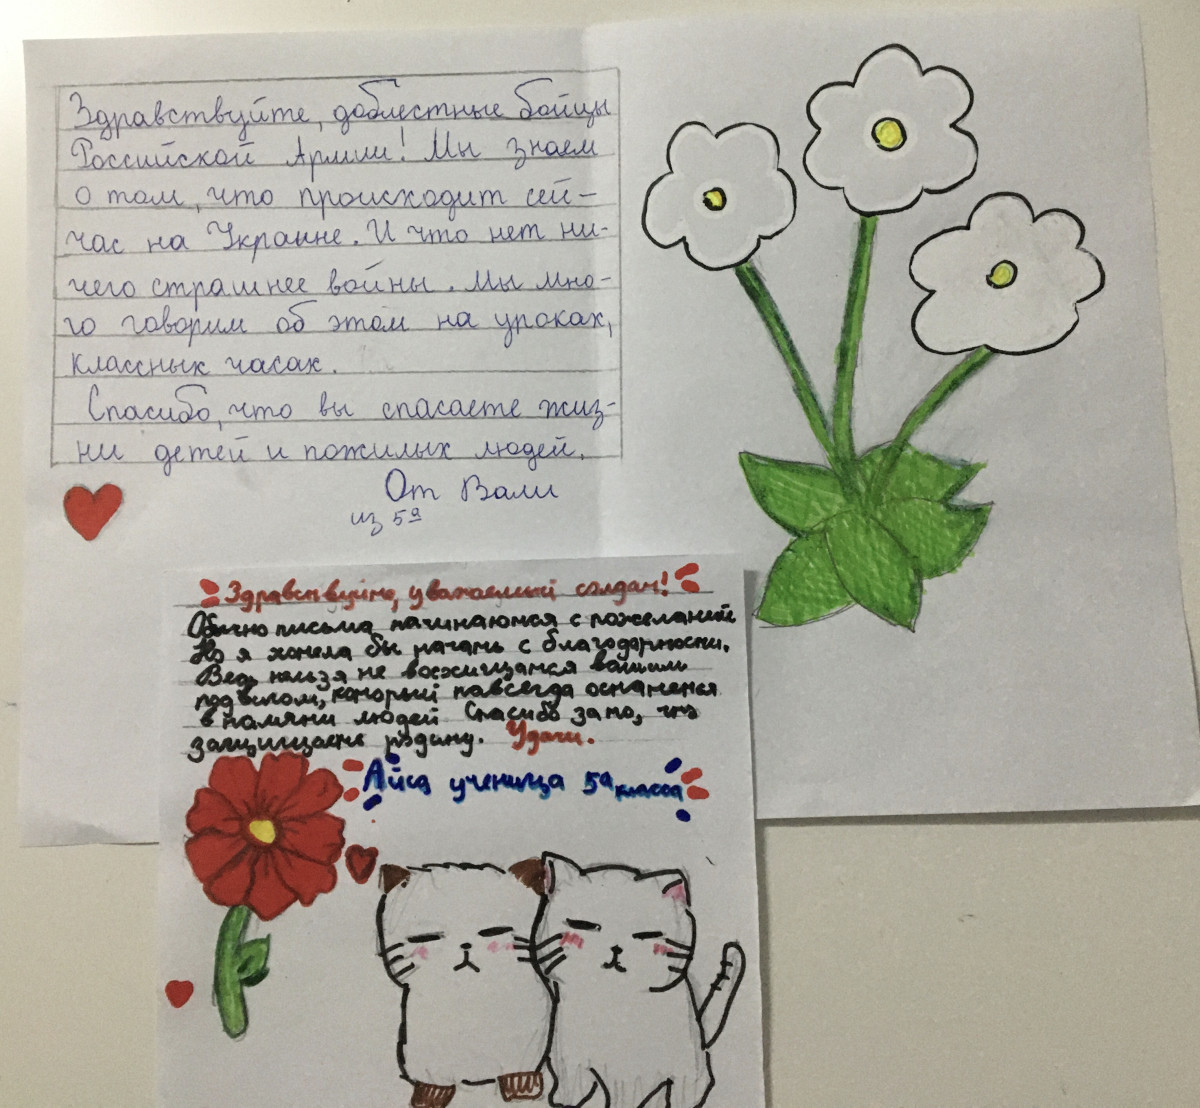 Здравствуйте, доблестные бойцы
Российской Армии! Мы знаем
о том, что происходит сей-
час на Украине. И что нет ни-
чего страшнее войны. Мы мно-
го говорим об этом на уроках,
классных часах.
Спасибо, что вы спасаете жиз-
ни детей и пожилых людей.
От Вали
из 5а
Здравствуйте, уважаемый солдат!
Обычно письма начинаются с пожеланий
Но я хотела бы начать с благодарности.
Ведь нельзя не восхищатся вашим
подвигом, который навсегда останется
в памяти людей Спасибо за то, что
защищаете родину. Удачи.
Айса ученица 5а класса